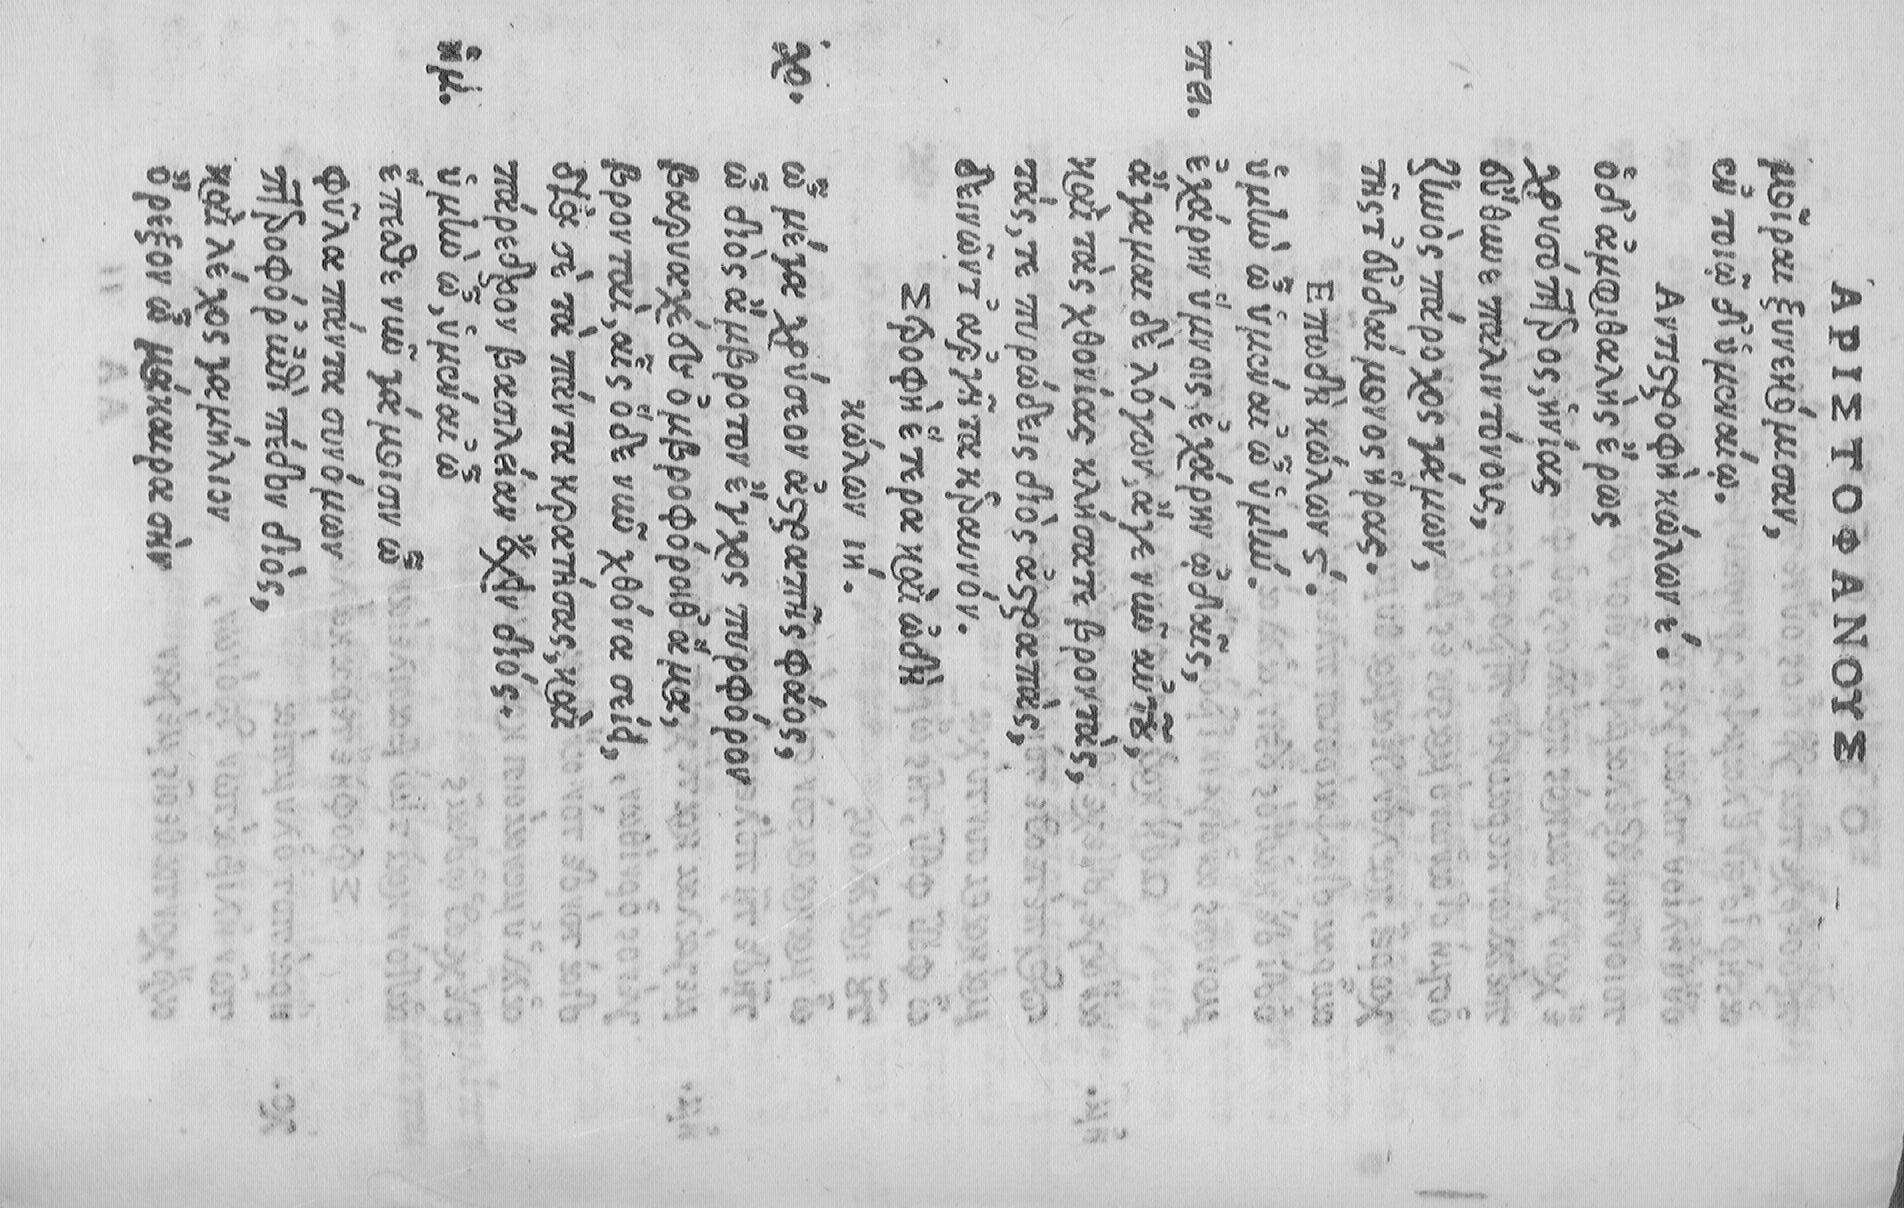 ΑΡΙΣΤΟΦΑΝΟΥΣ
μοῖραι ξυνεκόμισαν,
ἐν τοιῷ δ᾽ ὑμεναίῳ.
Αντιστροφὴ κώλων έ.
ὁ δ᾽ ἀμφιθαλὴς ἔρως
χρυσόπτερος, ἡνίας
εὔθυνε παλιντόνους,
ζηνὸς πάροχος γάμων,
τῆς τ᾽ εὐδαίμονος ἥρας.
Επωδὴ κώλων ς.
ὑμὴν ὦ ὑμέναι᾽ ὦ ὑμήν.
πει. ἐχάρην ὕμνοις ἐχάρην ᾠδαῖς,
ἄγαμαι δὲ λόγων, ἄγε νῦν αὐτοῦ,
καὶ τὰς χθονίας κλήσατε βροντάς,
τάς, τε πυρώδεις διὸς ἀστραπάς,
δεινόν τ᾽ ἀργῆτα κεραυνόν.
Στροφὴ ἑτέρα καὶ ὠδὴ
κώλων ιή.
χο. ὦ μέγα χρύσεον ἀστραπῆς φάος,
ὦ διὸς ἄμβροτον ἔγχος πυρφόρον
βαρυαχέες ὀμβροφόροι θ᾽ ἅμα,
βρονταί, αἷς ὅδε νῦν χθόνα σείει,
διὰ σὲ τὰ πάντα κρατήσας, καὶ
πάρεδρον βασιλείαν ἔχει διός.
ἡμ. ὑμὴν ὦ, ὑμέναι᾽ ὦ
ἕπεσθε νῦν γάμοισιν ὦ
φῦλα πάντα συνόμων
πτεροφόρ᾽ ἐπὶ πέδον διὸς,
καὶ λέχος γαμήλιον
ὄρεξον ὦ μάκαιρα σὴν